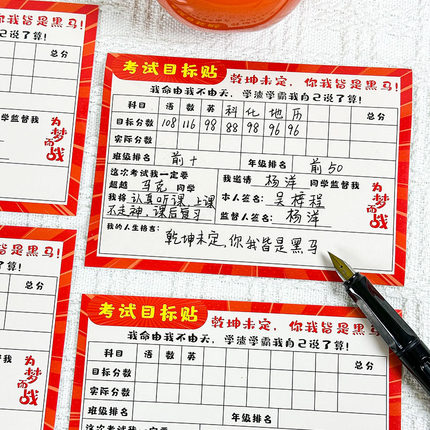 总分
学监督我
为梦而战
考试目标贴 乾坤未定，你我皆是黑马！
我命由我不由天，学渣学霸我自己说了算！
科目 语 数 英 科 化 地 历 总分
目标分数 108 116 98 88 98 96 96
实际分数
班级排名 前十 年级排名 前50
这次考试我一定要
超越 马克 同学 我邀请 杨洋 同学监督我
我将 认真听课,上课 本人签名: 吴梓程
不走神,课后复习 监督人签名: 杨洋
为梦而战
我的人生格言:
乾坤未定,你我皆是黑马
黑马！
了算！
总分
督我
为梦而战
考试目标贴 乾坤未定，你我皆是黑马！
我命由我不由天，学渣学霸我自己说了算！
科目 语 数 英 总分
目标分数
实际分数
班级排名 年级排名